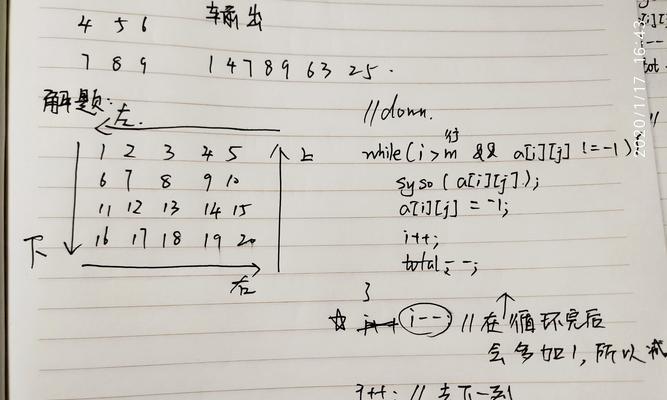 4 5 6 输出
7 8 9 1 4 7 8 9 6 3 2 5 .
解题:
左.
1 2 3 4 5 上
6 7 8 9 10
11 12 13 14 15
16 17 18 19 20
下
右
//down.
行
while(i>m && a[i][j] !=-1)
syso(a[i][j]);
a[i][j] = -1;
i++;
total--;
}
☆ i--; //在循环完后
会多加1,所以减
j++; //去下一列
2020/1/17 16:43
tot